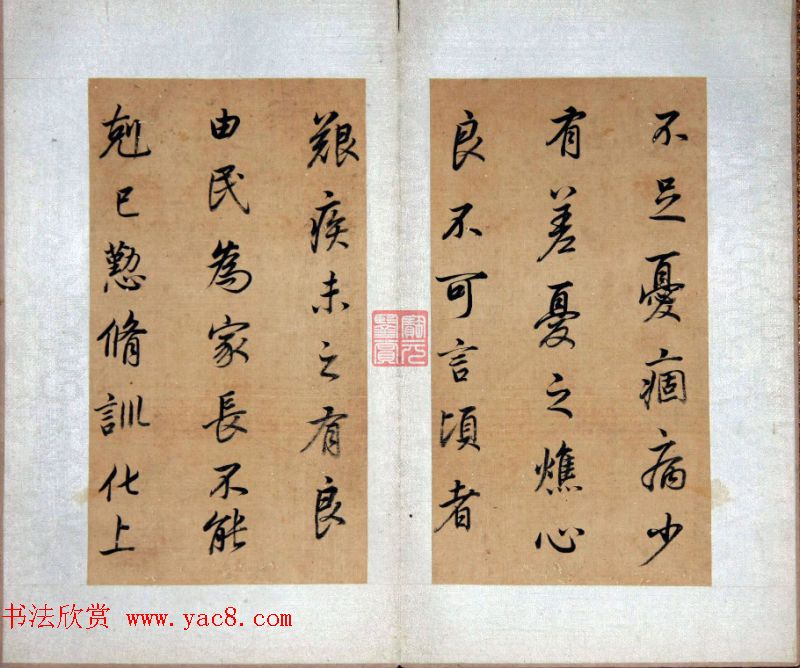 不足憂痼病少
有差憂之燋心
良不可言頃者
艱疾未之有良
由民為家長不能
剋己懃脩訓化上
书法欣赏 www.yac8.com